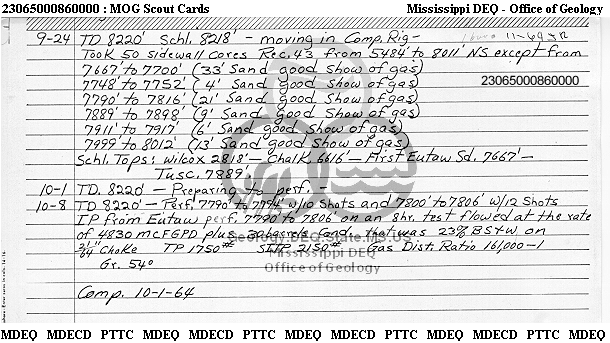 23065000860000 : MOG Scout Cards Mississippi DEQ - Office of Geology
9-24 TD 8220' Schl. 8218' - moving in Comp. Rig -
Took 50 sidewall cores Rec. 43 from 5484' to 8011' NS except from
7667' to 7700' (33' Sand good show of gas)
7748' to 7752' (4' Sand good show of gas) 23065000860000
7790' to 7816' (21' Sand good show of gas)
7889' to 7898' (9' Sand good show of gas)
7911' to 7917' (6' Sand good show of gas)
7999' to 8012' (13' Sand good show of gas)
Schl. Tops: Wilcox 2818' - Chalk. 6616' - First Eutaw Sd. 7667' -
Tusc. 7889'.
10-1 TD. 8220 - Preparing to perf.
10-8 TD 8220' - Perf. 7790' to 7794' w/10 Shots and 7800' to 7806' w/12 Shots
IP from Eutaw perf. 7790' to 7806' on an 8hr. test flowed at the rate
of 4830 MCFGPD plus 30 barrels Cond. that was 23% BS+W on
Geology.DEQ.State.MS.US
21"/64 Choke TP 1750# SITP 2150# Gas Dist. Ratio 161,000-1
Mississippi DEQ
Gr. 54°
Office of Geology
Comp. 10-1-64
MDEQ MDECD PTTC MDEQ MDECD PTTC MDEQ MDECD PTTC MDEQ MDECD PTTC MDEQ